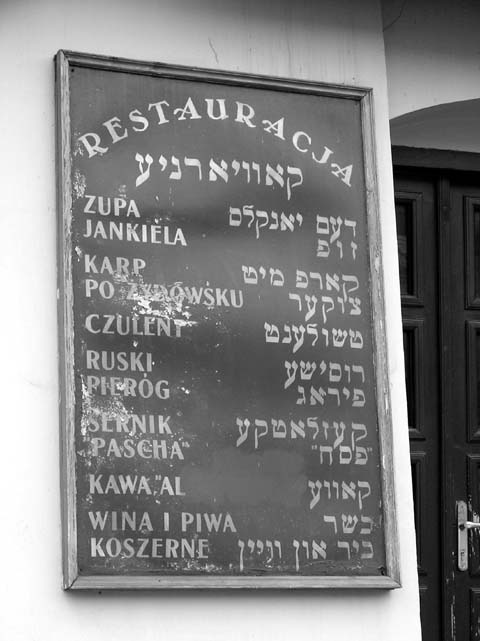 RESTAURACJA
קאוויארניע
ZUPA
JANKIELA
דעם יאנקלס
זופ
KARP
PO ŻYDOWSKU
קארפ מיט
צוקער
CZULENT
טשולענט
RUSKI
PIERÓG
רוסישע
פיראג
SERNIK
"PASCHA"
קעזלאטקע
"פסח"
KAWA "AL
קאווע
WINA I PIWA
KOSZERNE
כשר
ביר און וויין